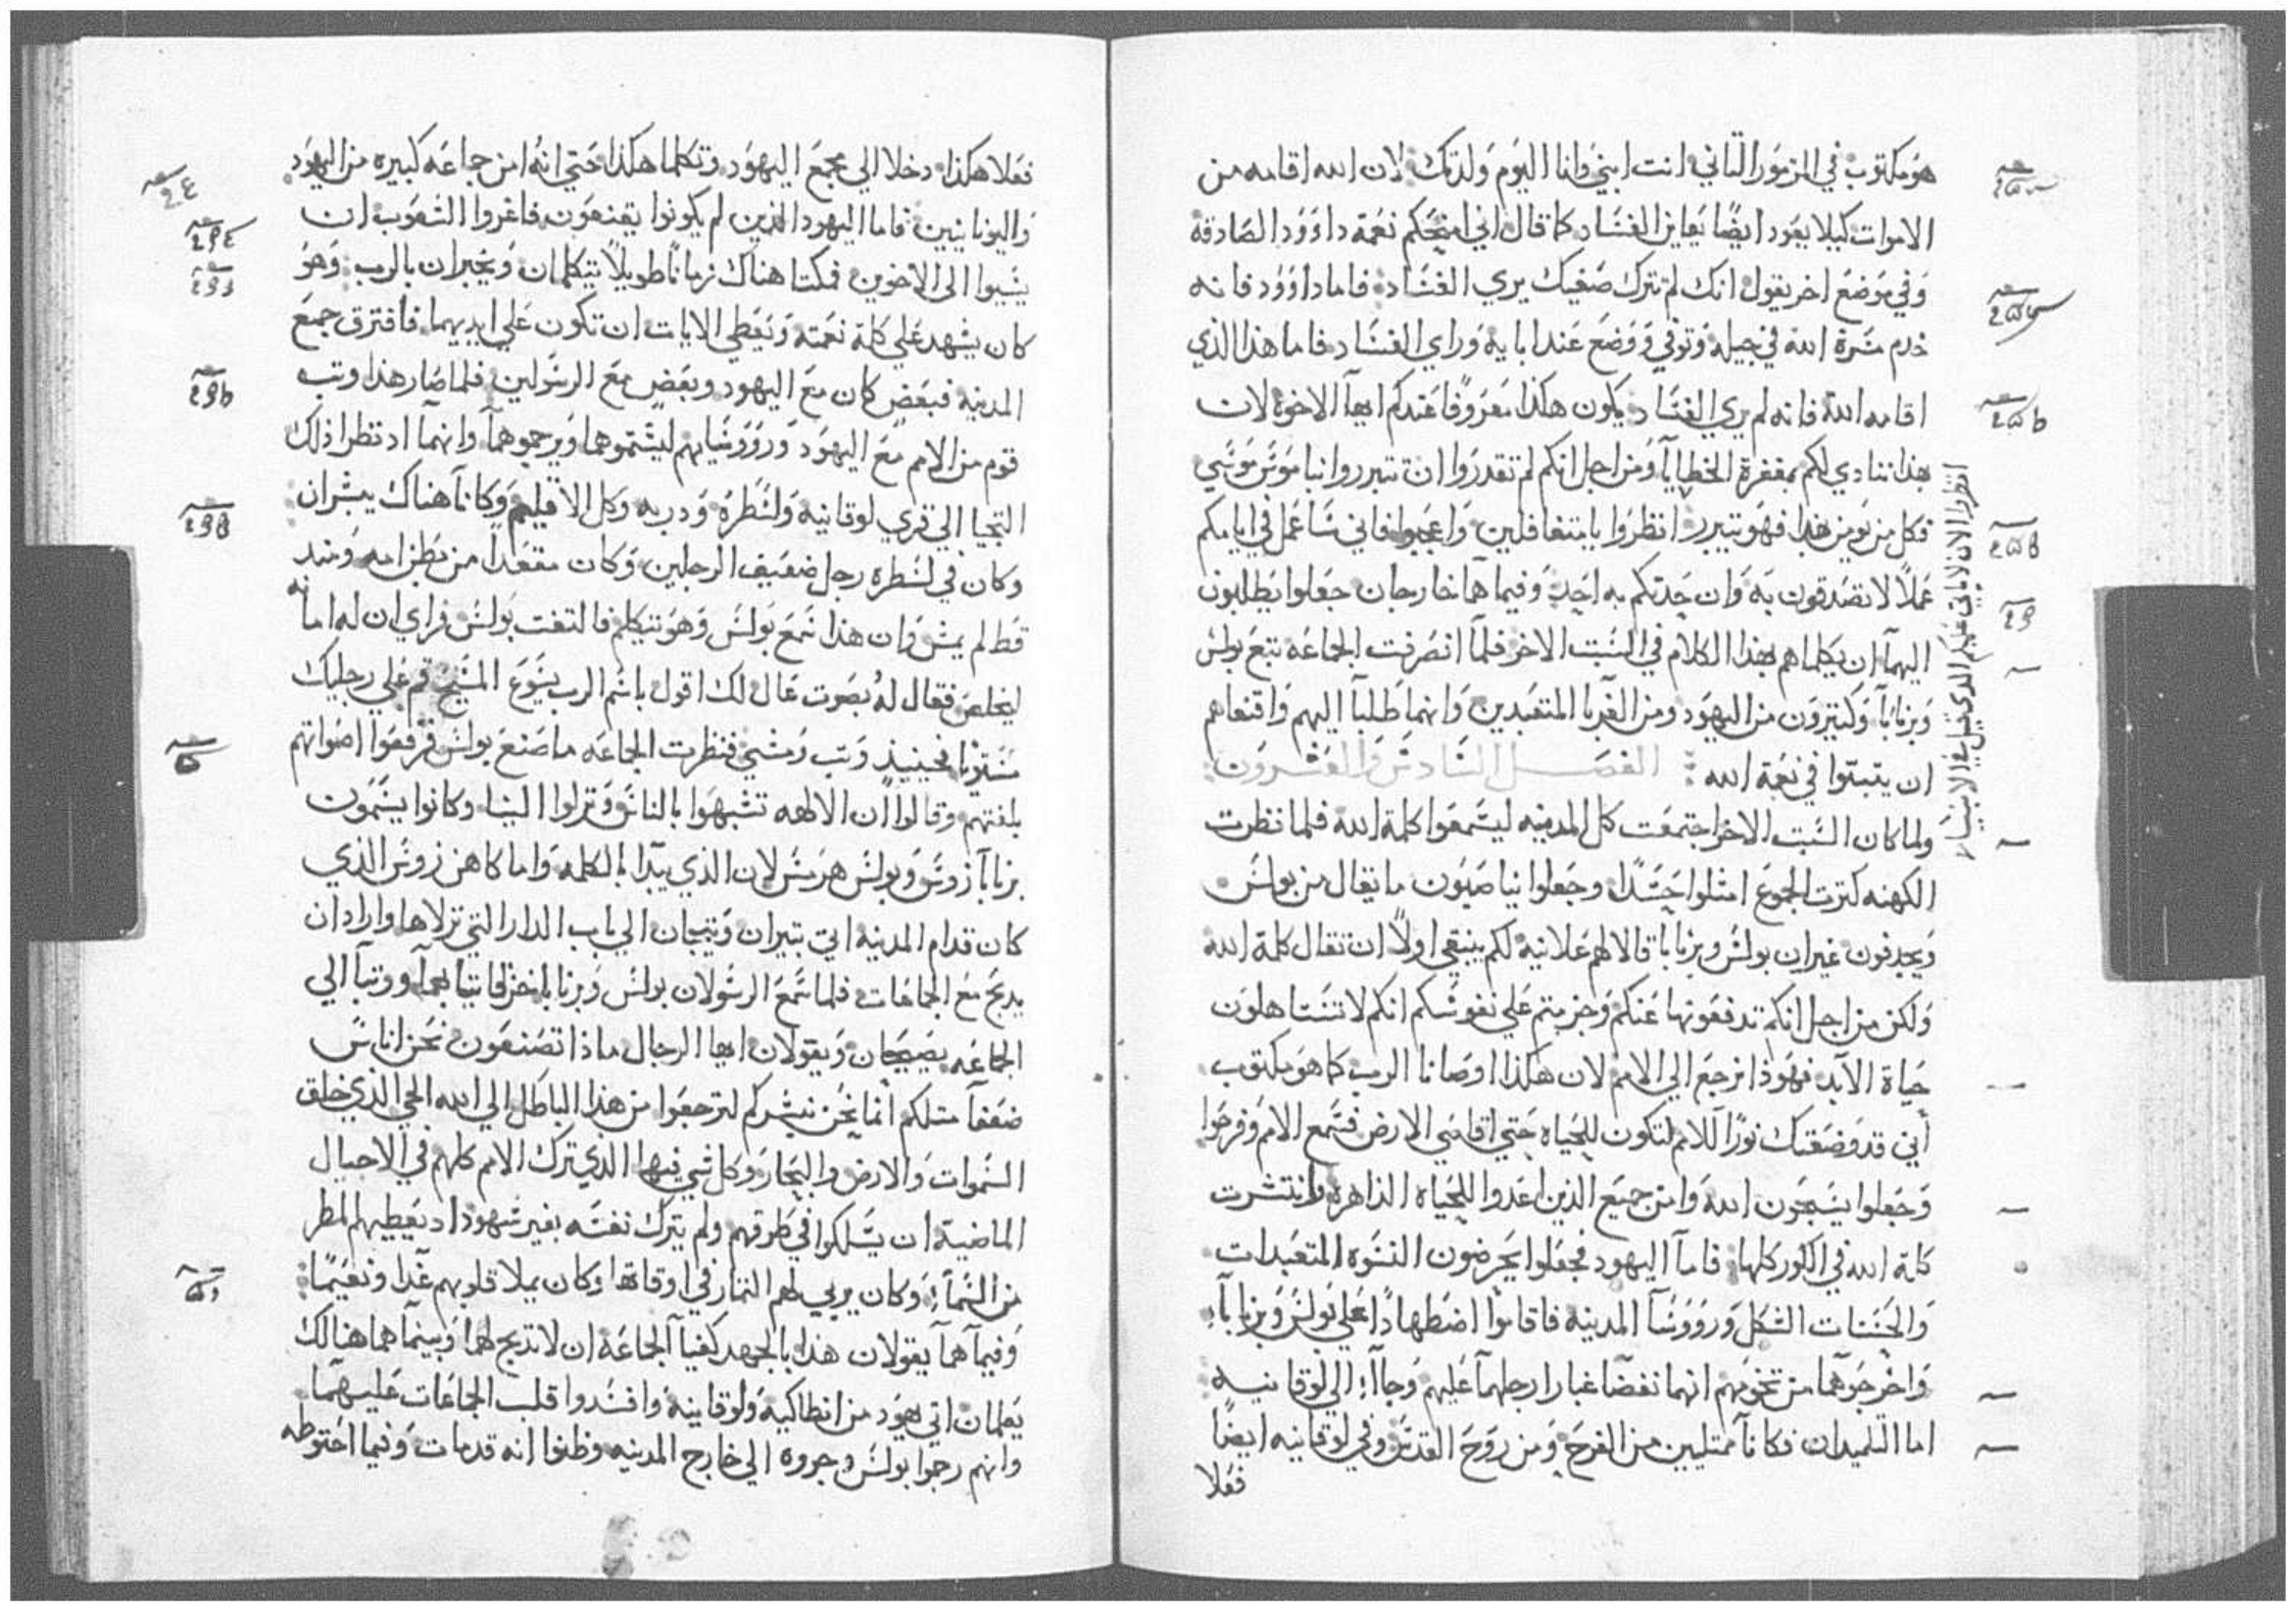 هو مكتوب في المزمور الثاني انت ابني وانا اليوم ولدتك لان الله اقامه من
الاموات كيلا يعود ايضًا يعاين الفساد كما قال اني امنحكم نعمة داوود الصادقة
وفي موضع اخر يقول انك لم تترك صفيك يري الفساد فاما داوود فانه
خدم مسرة الله في جيله وتوفي ووضع عند ابايه وراي الفساد فاما هذا الذي
اقامه الله فانه لم يري الفساد يكون هكذا معروفًا عندكم ايها الاخوة لان
بهذا ننادي لكم بمغفرة الخطايا ومن اجل انكم لم تقدروا ان تتبرروا بناموس موسي
فكل من يومن بهذا فهو يتبرر انظروا يا متغافلين واعجبوا فاني ساعمل في ايامكم
عملًا لا تصدقون به وان حدثكم به احد وفيما هما خارجان جعلوا يطلبون
اليهما ان يكلماهم بهذا الكلام في السبت الاخر فلما انصرفت الجماعه تبع بولس
وبرنابا وكثيرون من اليهود ومن الغربا المتعبدين وانهما طلبا اليهم واقنعاهم
ان يثبتوا في نعمة الله الفصل السادس والعشرون
ولما كان السبت الاخر اجتمعت كل المدينه ليسمعوا كلمة الله فلما نظرت
الكهنه كثرت الجموع امتلوا حسدًا وجعلوا يناصبون ما يقال من بولس
ويجدفون غير ان بولس وبرنابا قالا لهم علانية لكم ينبغي اولًا ان تقال كلمة الله
ولكن من اجل انكم تدفعونها عنكم وجزمتم علي نفوسكم انكم لا تستاهلون
حياة الابد فهوذا نرجع الي الامم لان هكذا اوصانا الرب كما هو مكتوب
أني قد وضعتك نورًا للامم لتكون للحياه حتي اقاصي الارض فسمع الامم وفرحوا
وجعلوا يسبحون الله وامن جميع الذين اعدوا للحياه الداهرة وانتشرت
كلمة الله في الكور كلها فاما اليهود فجعلوا يحرضون النسوه المتعبدات
والحسنات الشكل وروسا المدينه فاقاموا اضطهادًا علي بولس وبرنابا
واخرجوهما من تخومهم انهما نفضا غبار ارجلهما عليهم وجاآ الي لوقانيه
اما التلميدان فكانا ممتليين من الفرح ومن روح القدس وفي لوقانيه ايضًا
فعلا
انظروا الان لا ياتي عليكم الذي قيل في الانبيا
فعلا هكذا دخلا الي مجمع اليهود وتكلما هكذا حتي انه امن جماعه كبيره من اليهود
واليونانيين فاما اليهود الذين لم يكونوا يقنعون فاغروا الشعوب ان
يسيوا الى الاخوين فمكثا هناك زمانًا طويلًا يتكلمان ويخبران بالرب وهو
كان يشهد علي كلمة نعمته ويعطي الايات ان تكون علي ايديهما فافترق جمع
المدينه فبعض كان مع اليهود وبعض مع الرسولين فلما صار هذا وثب
قوم من الامم مع اليهود وروسايهم ليشتموهما ويرجموهما وانهما اد نظرا ذلك
التجيا الي قري لوقانيه ولسطره ودربه وكل الاقليم وكانا هناك يبشران
وكان في لسطره رجل ضعيف الرجلين وكان مقعدًا من بطن امه ومند
قط لم يمش وان هذا سمع بولس وهو يتكلم فالتفت بولس فراي ان له امانه
ليخلص فقال له بصوت عال لك اقول باسم الرب يسوع المسيح قم علي رجليك
مستويًا فحينيد وثب ومشي فنظرت الجماعه ما صنع بولس فرفعوا اصواتهم
بلغتهم وقالوا ان الالهه تشبهوا بالناس ونزلوا الينا وكانوا يسمون
برنابا زوس وبولس هرمس لان الذي يبدا بالكلمه واما كاهن زوس الذي
كان قدام المدينه اتي بثيران وتيجان الي باب الدار التي نزلاها واراد ان
يدبح مع الجماعات فلما سمع الرسولان بولس وبرنابا خرقا ثيابهما ووثبا الي
الجماعه يصيحان ويقولان ايها الرجال ماذا تصنعون نحن اناس
ضعفا مثلكم انما نحن نبشركم لترجعوا من هذا الباطل الي الله الحي الذي خلق
السموات والارض والبحار وكل شي فيها الذي ترك الامم كلهم في الاجيال
الماضية ان يسلكوا في طرقهم ولم يترك نفسه بغير شهود اد يعطيهم المطر
من السما وكان يربي لهم الثمار في اوقاتها وكان يملا قلوبهم غدا ونعيمًا
وفيما هما يقولان هذا بالجهد كفيا الجماعه ان لا تدبح لهما وبينما هما هنالك
يعلمان اتي يهود من انطاكيه ولوقانيه وافسدوا قلب الجماعات عليهما
وانهم رجموا بولس وجروه الي خارج المدينه وظنوا انه قد مات وفيما احتوطه